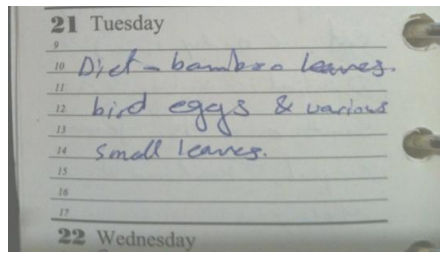 21 Tuesday
9
10 Diet - bamboo leaves.
11
12 bird eggs & various
13
14 small leaves.
15
16
17
22 Wednesday